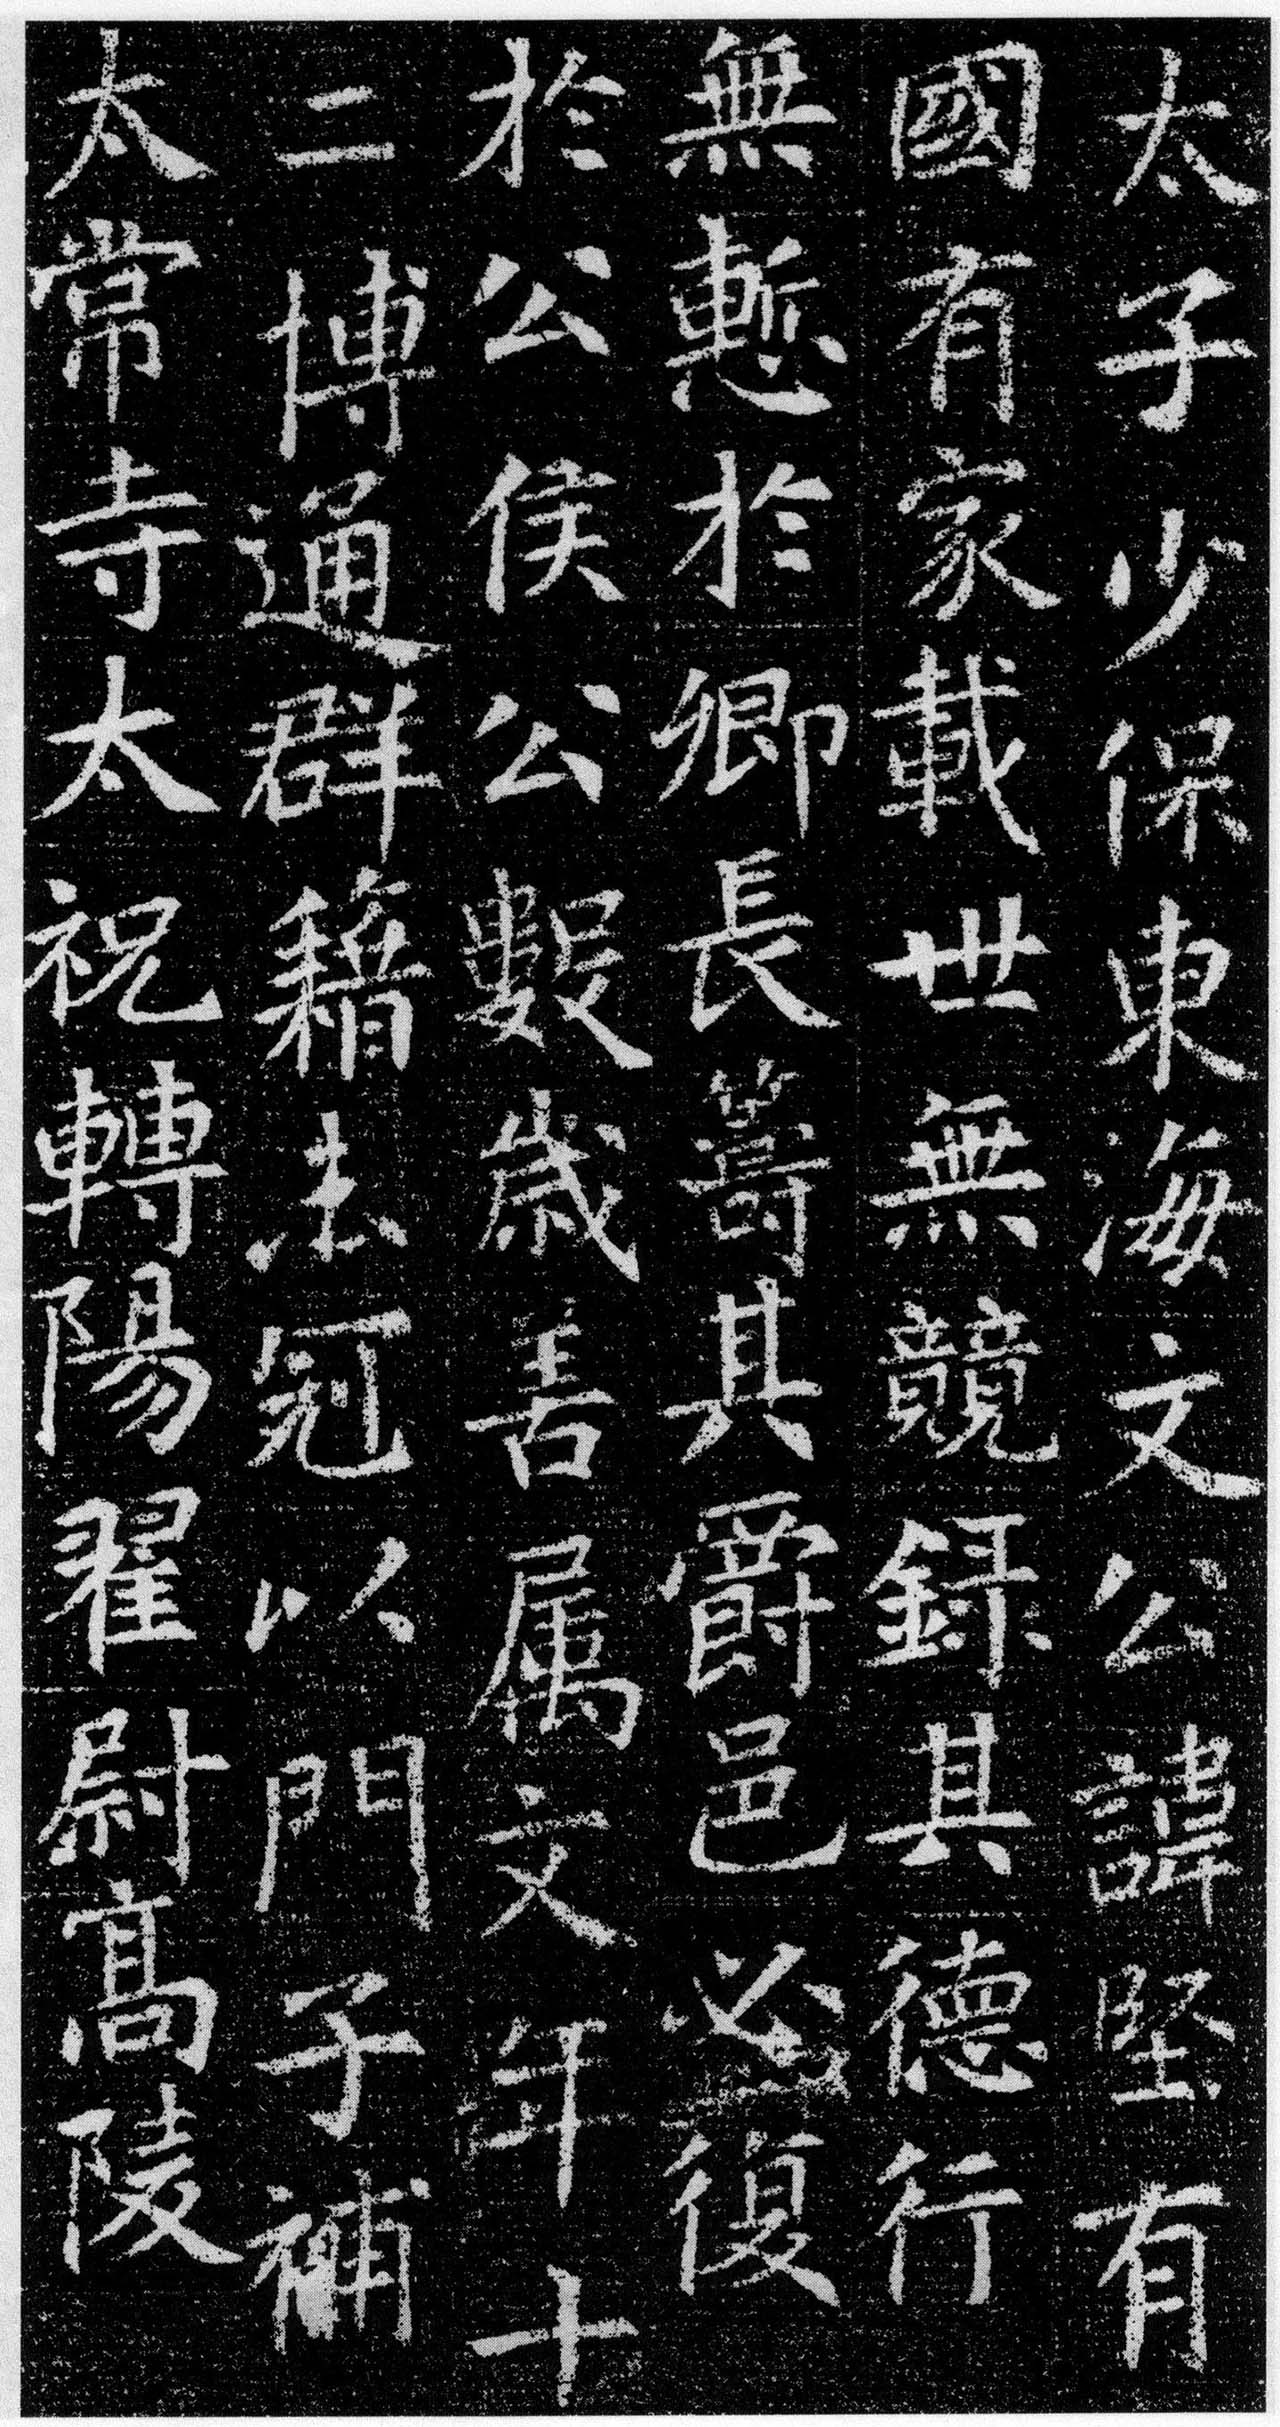 太子少保東海文公諱堅有
國有家載世無競録其德行
無慙於卿長籌其爵邑必復
於公侯公公數歲善属文年十
二博通群籍去冠以門子補
太常寺太祝轉陽翟尉高陵